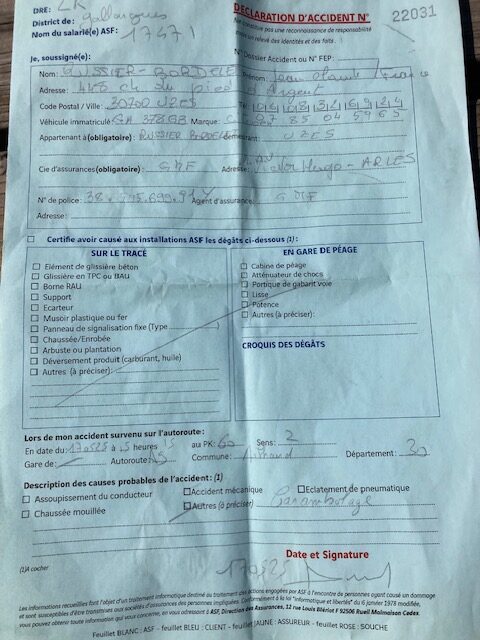 DRE : ZR
District de : Gallargues
Nom du salarié(e) ASF : 17471
DECLARATION D'ACCIDENT N° 22031
Ne constitue pas une reconnaissance de responsabilité
un relevé des identités et des faits.
N° Dossier Accident ou N° FEP :
Je, soussigné(e) :
Nom : RUSSIER-BORDELE Prénom : Jean Claude
Adresse : 448 ch du pied d'Argent
Code Postal / Ville : 30700 UZES Tél :
Véhicule immatriculé GA 378 GB Marque :
Appartenant à (obligatoire) : RUSSIER demeurant : UZES
Cie d'assurances (obligatoire) : GMF Adresse : Victor Hugo - ARLES
N° de police : Agent d'assurance : GMF
Adresse :
Certifie avoir causé aux installations ASF les dégâts ci-dessous (1) :
SUR LE TRACÉ
Elément de glissière béton
Glissière en TPC ou BAU
Borne RAU
Support
Ecarteur
Musoir plastique ou fer
Panneau de signalisation fixe (Type
Chaussée/Enrobée
Arbuste ou plantation
Déversement produit (carburant, huile)
Autres (à préciser) :
EN GARE DE PÉAGE
Cabine de péage
Atténuateur de chocs
Portique de gabarit voie
Lisse
Potence
Autres (à préciser) :
CROQUIS DES DÉGÂTS
Lors de mon accident survenu sur l'autoroute :
En date du : 170525 à 15 heures au PK : 60 Sens : 2
Gare de : Autoroute : Commune : Département : 30
Description des causes probables de l'accident : (1)
Assoupissement du conducteur Accident mécanique Eclatement de pneumatique
Chaussée mouillée Autres (à préciser) Carambolage
Date et Signature
(1) A cocher
170525
Les informations recueillies font l'objet d'un traitement informatique destiné au traitement des actions engagées par ASF à l'encontre de personnes ayant causé un dommage
et sont susceptibles d'être transmises aux sociétés d'assurances des personnes impliquées. Conformément à la loi "informatique et libertés" du 6 janvier 1978 modifiée,
vous pouvez obtenir toute information qui vous concerne, en vous adressant à ASF, Direction des Assurances, 12 rue Louis Blériot F 92506 Rueil Malmaison Cedex.
Feuillet BLANC : ASF - feuillet BLEU : CLIENT - feuillet JAUNE : ASSUREUR - feuillet ROSE : SOUCHE